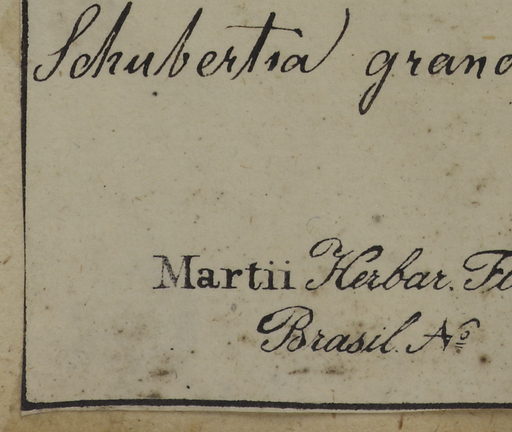 Schubertia grand
Martii Herbar. Fl
Brasil. No